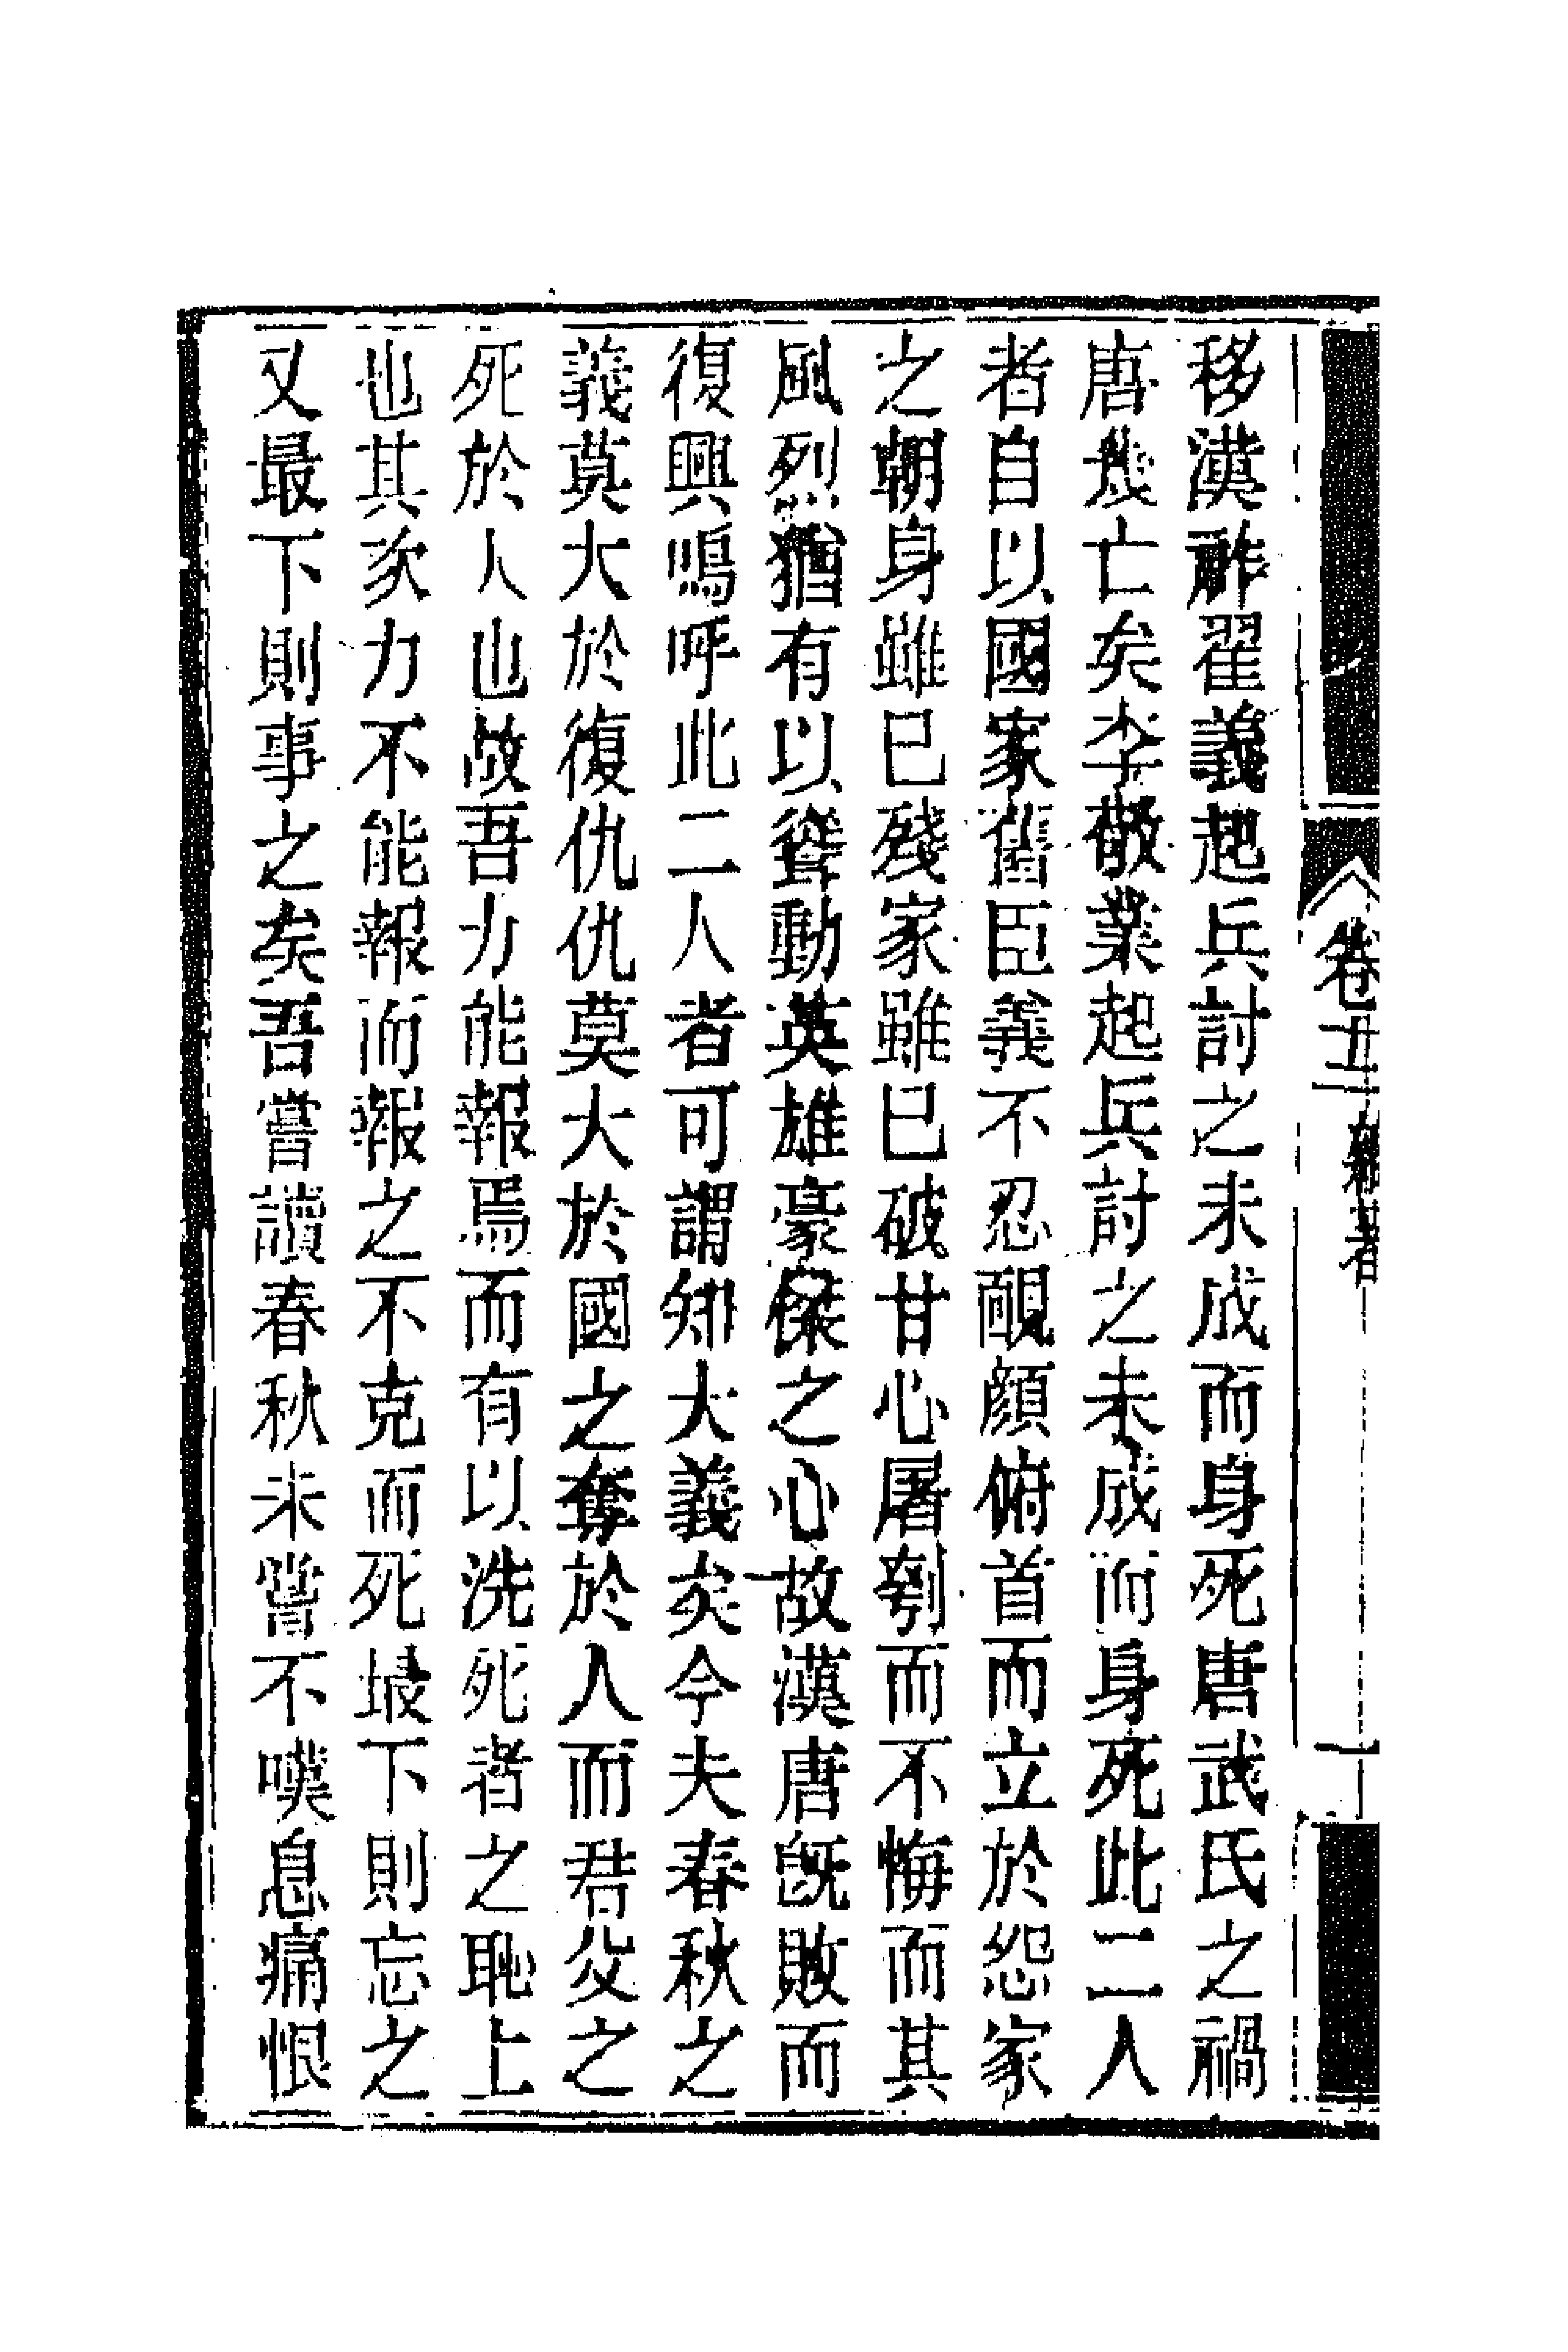 卷五 雜著
移漢祚翟義起兵討之未成而身死唐武氏之禍
唐幾亡矣李敬業起兵討之未成而身死此二人
者自以國家舊臣義不忍靦顏俯首而立於怨家
之朝身雖已殘家雖已破甘心屠刳而不悔而其
風烈猶有以聳動英雄豪傑之心故漢唐旣敗而
復興嗚呼此二人者可謂知大義矣今夫春秋之
義莫大於復仇仇莫大於國之奪於人而君父之
死於人也故吾力能報焉而有以洗死者之恥上
也其次力不能報而報之不克而死最下則忘之
又最下則事之矣吾嘗讀春秋未嘗不嘆息痛恨